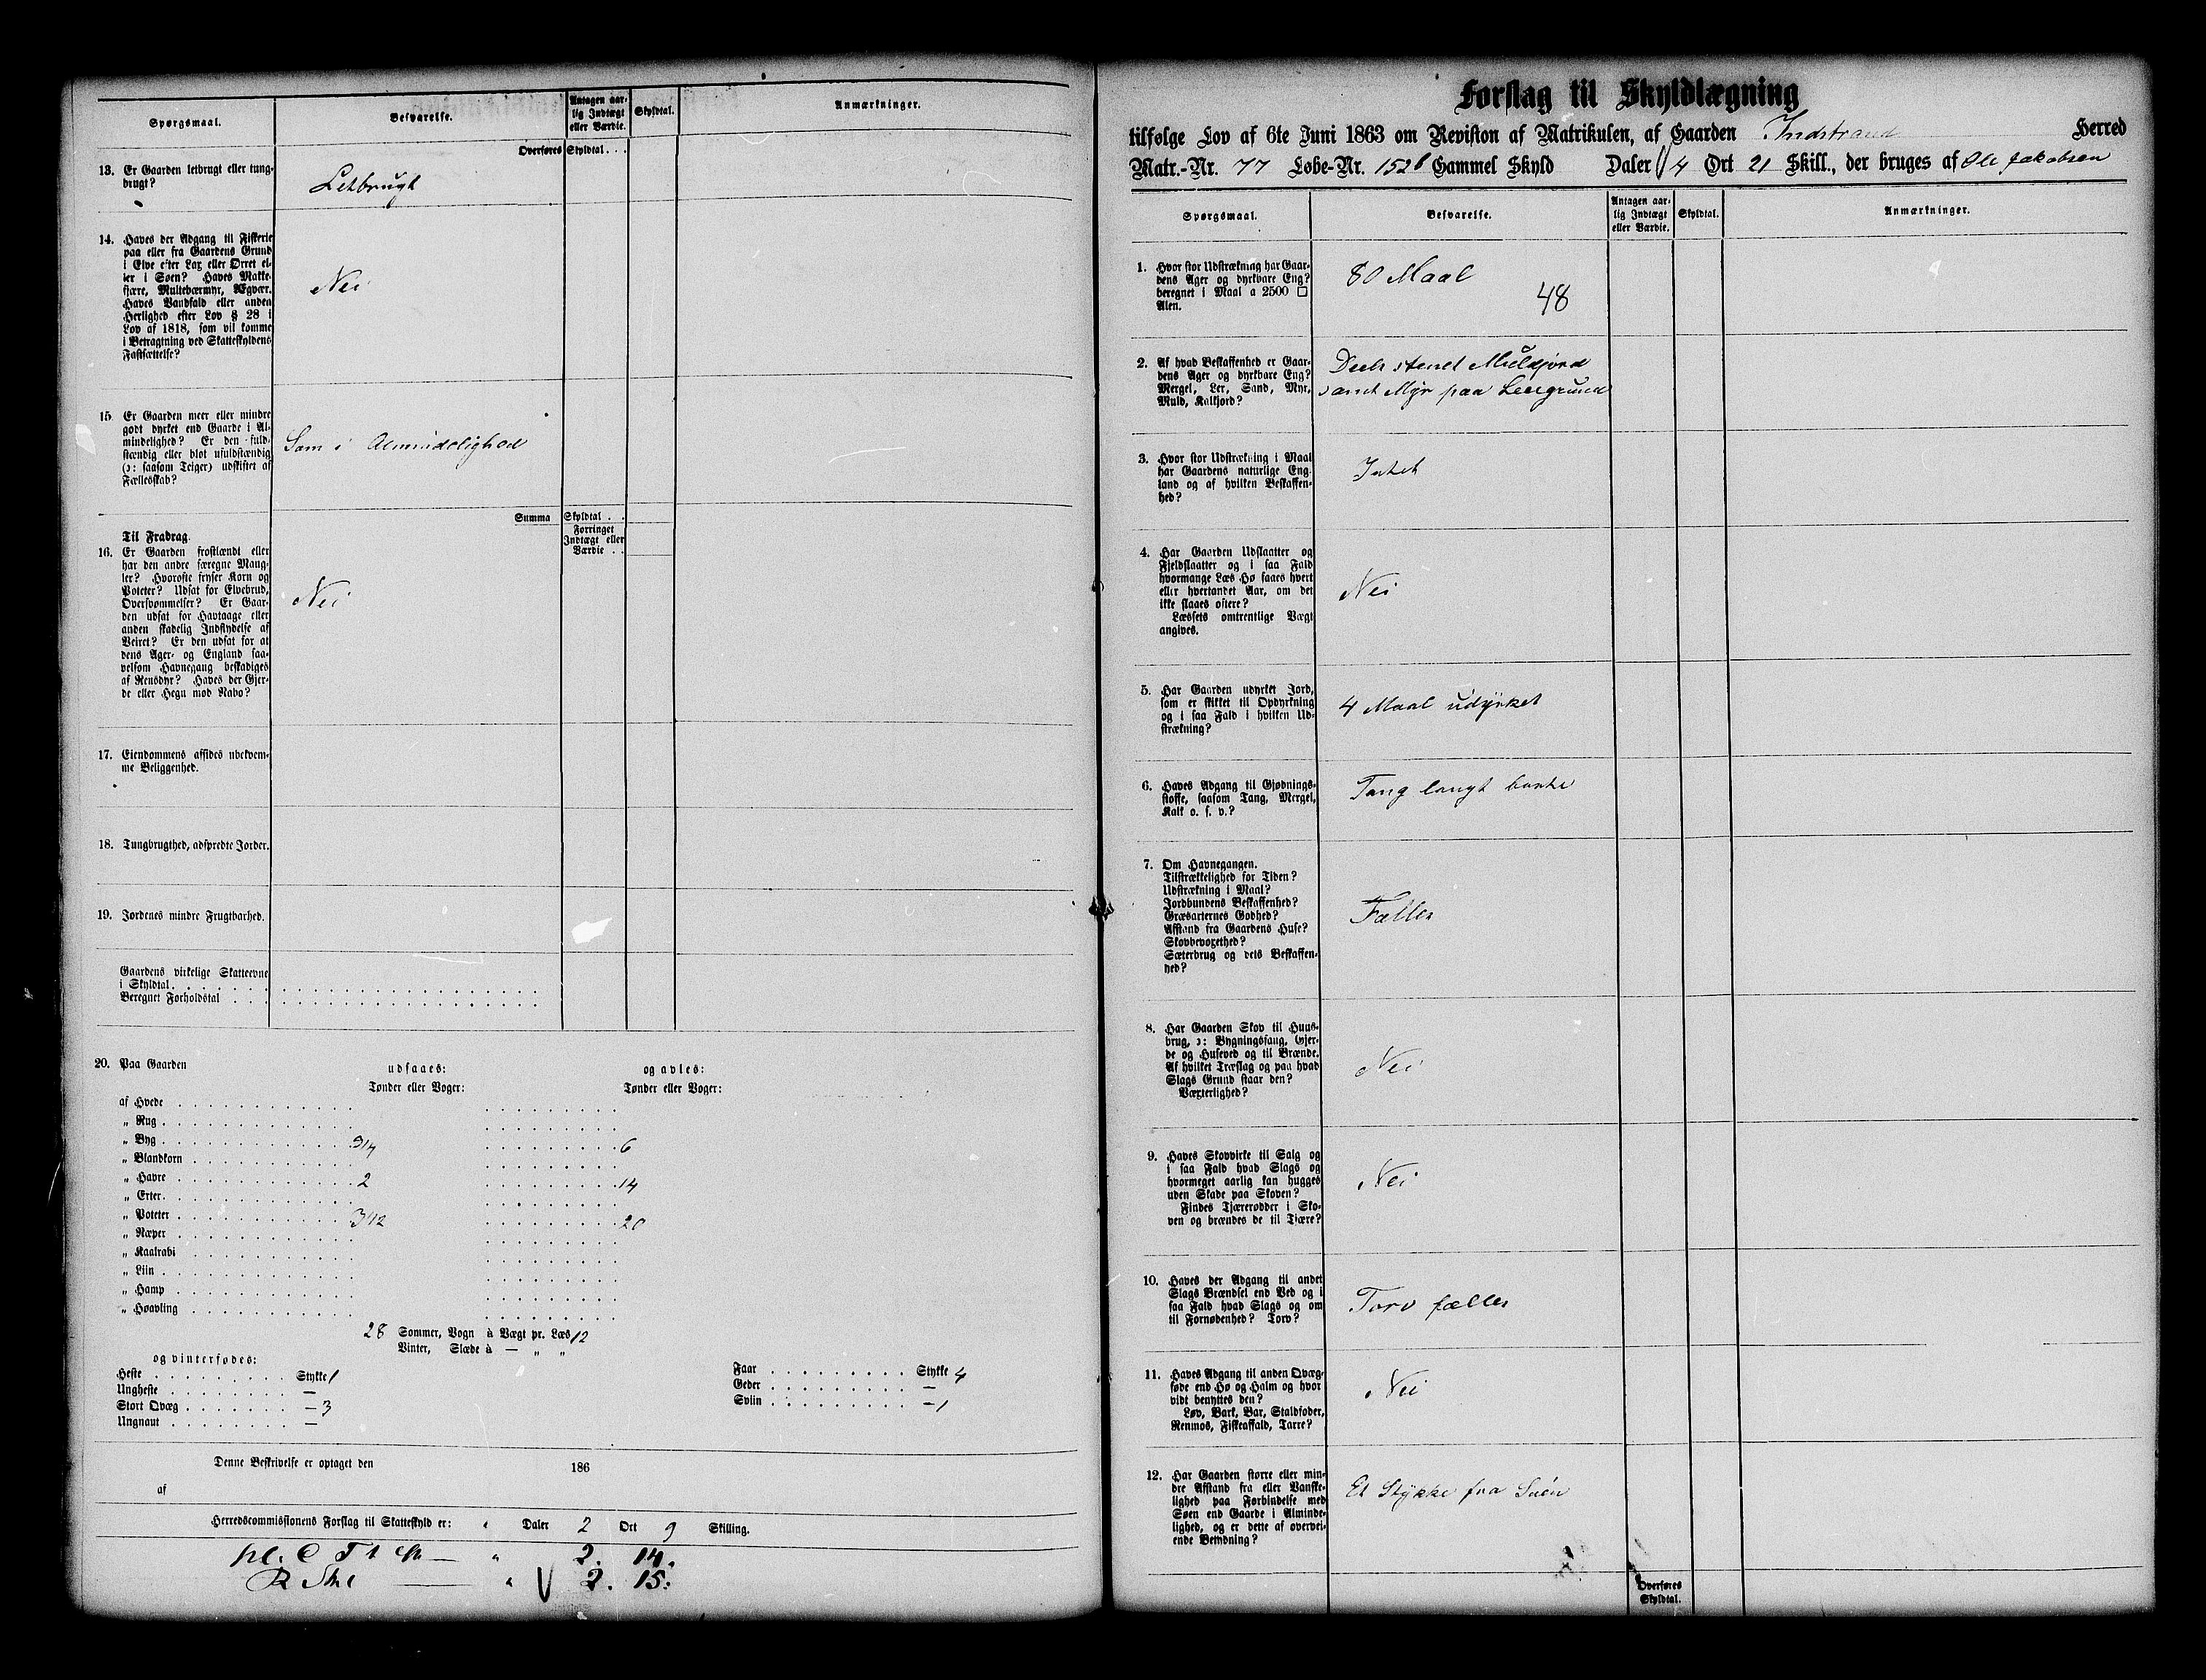 Spørgsmaal.
Besvarelse.
Antagen aar-
lig Indtægt
eller Værdie.
Skyldtal.
Anmærkninger.
Overføres Skyldtal . . .
13. Er Gaarden letbrugt eller tung-
brugt?
Letbrugt
14. Haves der Adgang til Fiskerie
paa eller fra Gaardens Grund
i Elve efter Lax eller Ørret el-
ler i Søen? Haves Makke-
fjære, Multebærmyr, Ægvær.
Haves Vandfald eller anden
Herlighed efter Lov § 28 i
Lov af 1818, som vil komme
i Betragtning ved Skatteskyldens
Fastsættelse?
Nei
15. Er Gaarden meer eller mindre
godt dyrket end Gaarde i Al-
mindelighed? Er den fuld-
stændig eller blot ufuldstændig
(ɔ: saasom Teiger) udskiftet af
Fællesskab?
Som i Almindelighed
Summa Skyldtal . .
Forringet
Indtægt eller
Værdie . .
Til Fradrag.
16. Er Gaarden frostlændt eller
har den andre færegne Mang-
ler? Hvorofte fryser Korn og
Poteter? Udsat for Elvebrud,
Oversvømmelser? Er Gaar-
den udsat for Havtaage eller
anden skadelig Indflydelse af
Veiret? Er den udsat for at
dens Ager- og England saa-
velsom Havnegang beskadiges
af Rensdyr? Haves der Gjer-
de eller Hegn mod Nabo?
Nei
17. Eiendommens afsides ubekvem-
me Beliggenhed.
18. Tungbrugthed, adspredte Jorder.
19. Jordenes mindre Frugtbarhed.
Gaardens virkelige Skatteevne
i Skyldtal.
Beregnet Forholdstal
20. Paa Gaarden
udsaaes:
og avles:
Tønder eller Voger:
Tønder eller Voger:
af Hvede
„ Rug
„ Byg 3/4 6
„ Blandkorn
„ Havre 2 14
„ Erter
„ Poteter 3 1/2 20
„ Næper
„ Kaalrabi
„ Liin
„ Hamp
„ Høavling
28 Sommer, Vogn à Vægt pr. Læs 12
Vinter, Slæde à — „ „
og vinterfødes:
Heste Stykke 1
Ungheste —
Stort Qvæg — 3
Ungnaut —
Faar Stykke 4
Geder —
Sviin — 1
Denne Beskrivelse er optaget den 186
af
Herredscommissionens Forslag til Skatteskyld er: „ Daler 2 Ort 9 Skilling.
„ 2. 14.
„ 2. 15.
Forslag til Skyldlægning
tilfølge Lov af 6te Juni 1863 om Revision af Matrikulen, af Gaarden Indstrand Herred
Matr.-Nr. 77 Løbe-Nr. 152b Gammel Skyld Daler 4 Ort 21 Skill., der bruges af Ole Jakobsen
Spørgsmaal.
Besvarelse.
Antagen aar-
lig Indtægt
eller Værdie.
Skyldtal.
Anmærkninger.
1. Hvor stor Udstrækning har Gaar-
dens Ager og dyrkbare Eng?
beregnet i Maal a 2500 □
Alen.
80 Maal
48
2. Af hvad Beskaffenhed er Gaar-
dens Ager og dyrkbare Eng?
Mergel, Ler, Sand, Myr,
Muld, Kalkjord?
Deels stenet Muldjord
samt Myr paa Leergrund
3. Hvor stor Udstrækning i Maal
har Gaardens naturlige Eng-
land og af hvilken Beskaffen-
hed?
Intet
4. Har Gaarden Udslaatter og
Fjeldslaatter og i saa Fald
hvormange Læs Hø faaes hvert
eller hvertandet Aar, om det
ikke slaaes oftere?
Læssets omtrentlige Vægt
angives.
Nei
5. Har Gaarden udyrket Jord,
som er skikket til Opdyrkning
og i saa Fald i hvilken Ud-
strækning?
4 Maal udyrket
6. Haves Adgang til Gjødnings-
stoffe, saasom Tang, Mergel,
Kalk o. s. v.?
Tang langt borte
7. Om Havnegangen.
Tilstrækkelighed for Tiden?
Udstrækning i Maal?
Jordbundens Beskaffenhed?
Græsarternes Godhed?
Afstand fra Gaardens Huse?
Skovbevoxethed?
Sæterbrug og dets Beskaffen-
hed?
Fælles
8. Har Gaarden Skov til Huus-
brug, ɔ: Bygningsfang, Gjer-
de og Huseved og til Brænde.
Af hvilket Træslag og paa hvad
Slags Grund staar den?
Væxterlighed?
Nei
9. Haves Skovvirke til Salg og
i saa Fald hvad Slags og
hvormeget aarlig kan hugges
uden Skade paa Skoven?
Findes Tjærerødder i Sko-
ven og brændes de til Tjære?
Nei
10. Haves der Adgang til andet
Slags Brændsel end Ved og i
saa Fald hvad Slags og om
til Fornødenhed? Torv?
Torv fælles
11. Haves Adgang til anden Qvæg-
føde end Hø og Halm og hvor
vidt benyttes den?
Løv, Bark, Bar, Staldfoder,
Renmos, Fiskeaffald, Tarre?
Nei
12. Har Gaarden større eller min-
dre Afstand fra eller Vanske-
lighed paa Forbindelse med
Søen end Gaarde i Alminde-
lighed, og er dette af overvei-
ende Betydning?
Et Stykke fra Søen
Overføres
Skyldtal.